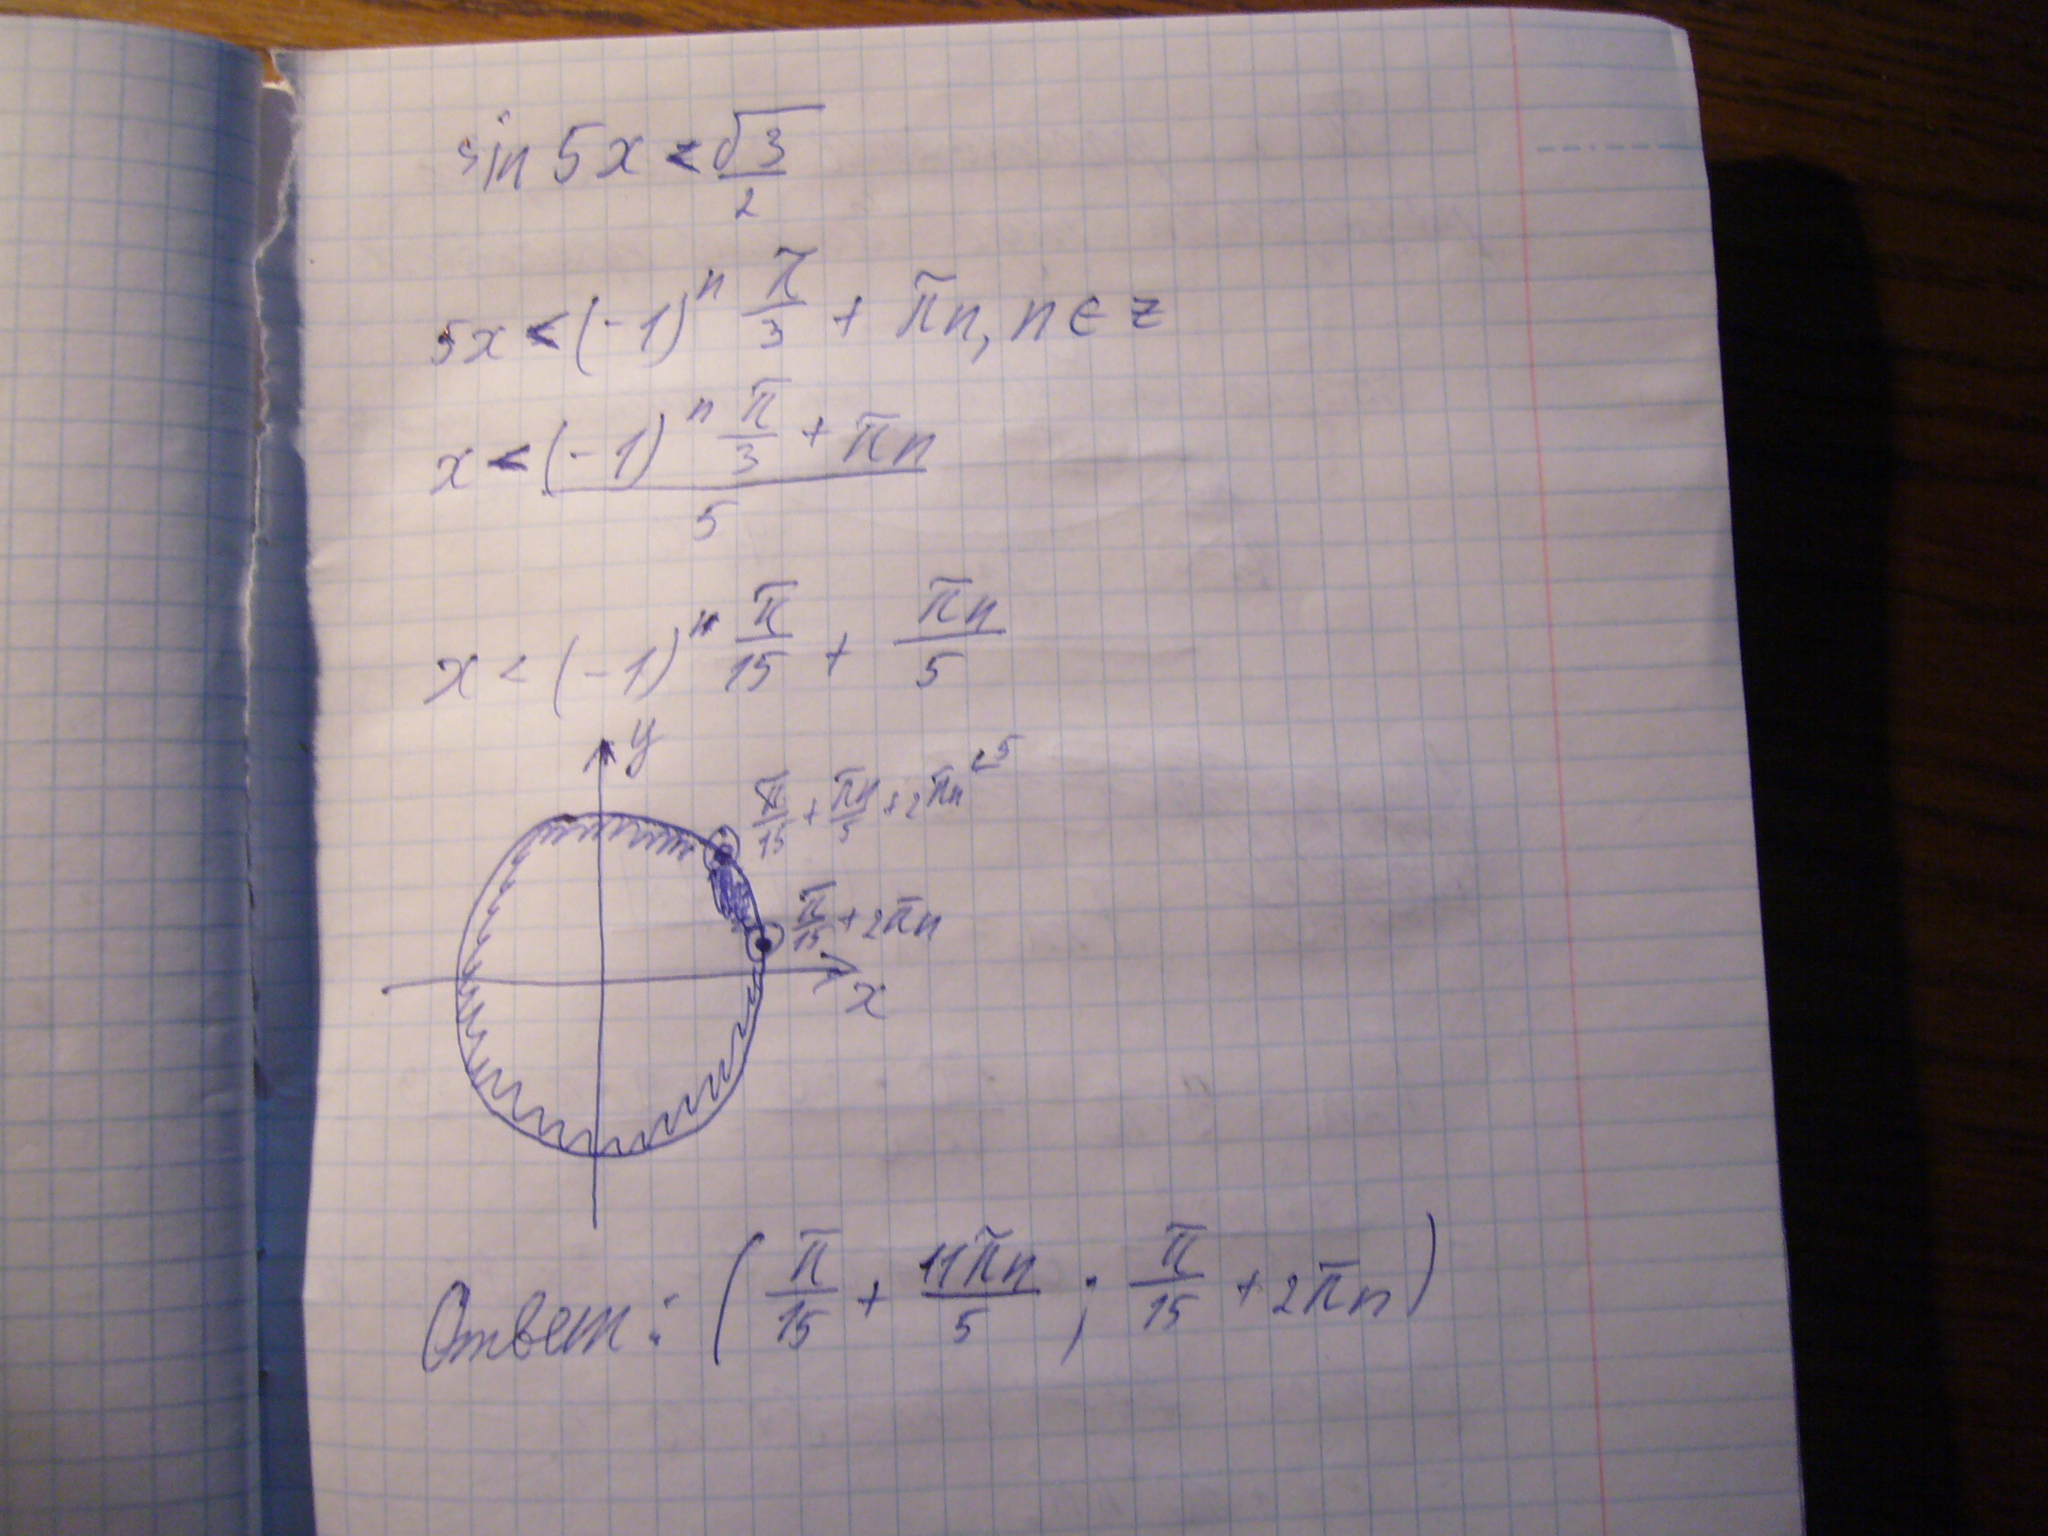 sin 5x < √3/2
5x < (-1)^n π/3 + πn, n ∈ z
x < ((-1)^n π/3 + πn)/5
x < (-1)^n π/15 + πn/5
y
π/15 + πn/5 + 2πn
π/15 + 2πn
x
Ответ: (π/15 + 11πn/5 ; π/15 + 2πn)